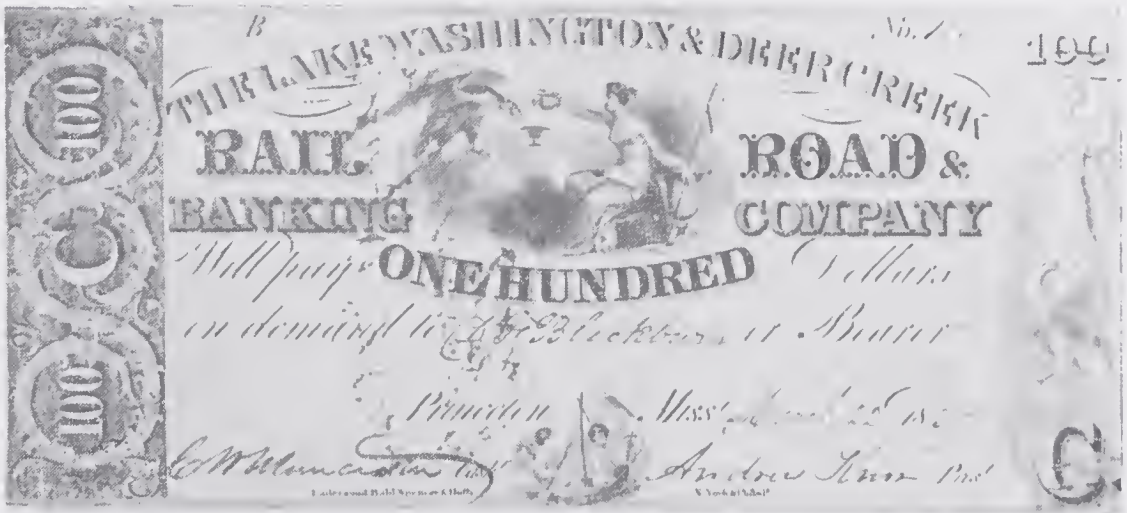 B No. 1
100
THE LAKE WASHINGTON & DEER CREEK
RAIL ROAD &
BANKING COMPANY
Will pay ONE HUNDRED Dollars
on demand to Blackburn or Bearer
Princeton Miss.
Cash.
Andrew Knox Pres.
Underwood Bald Spencer & Hufty
N. York & Philad.
100
C
100
C